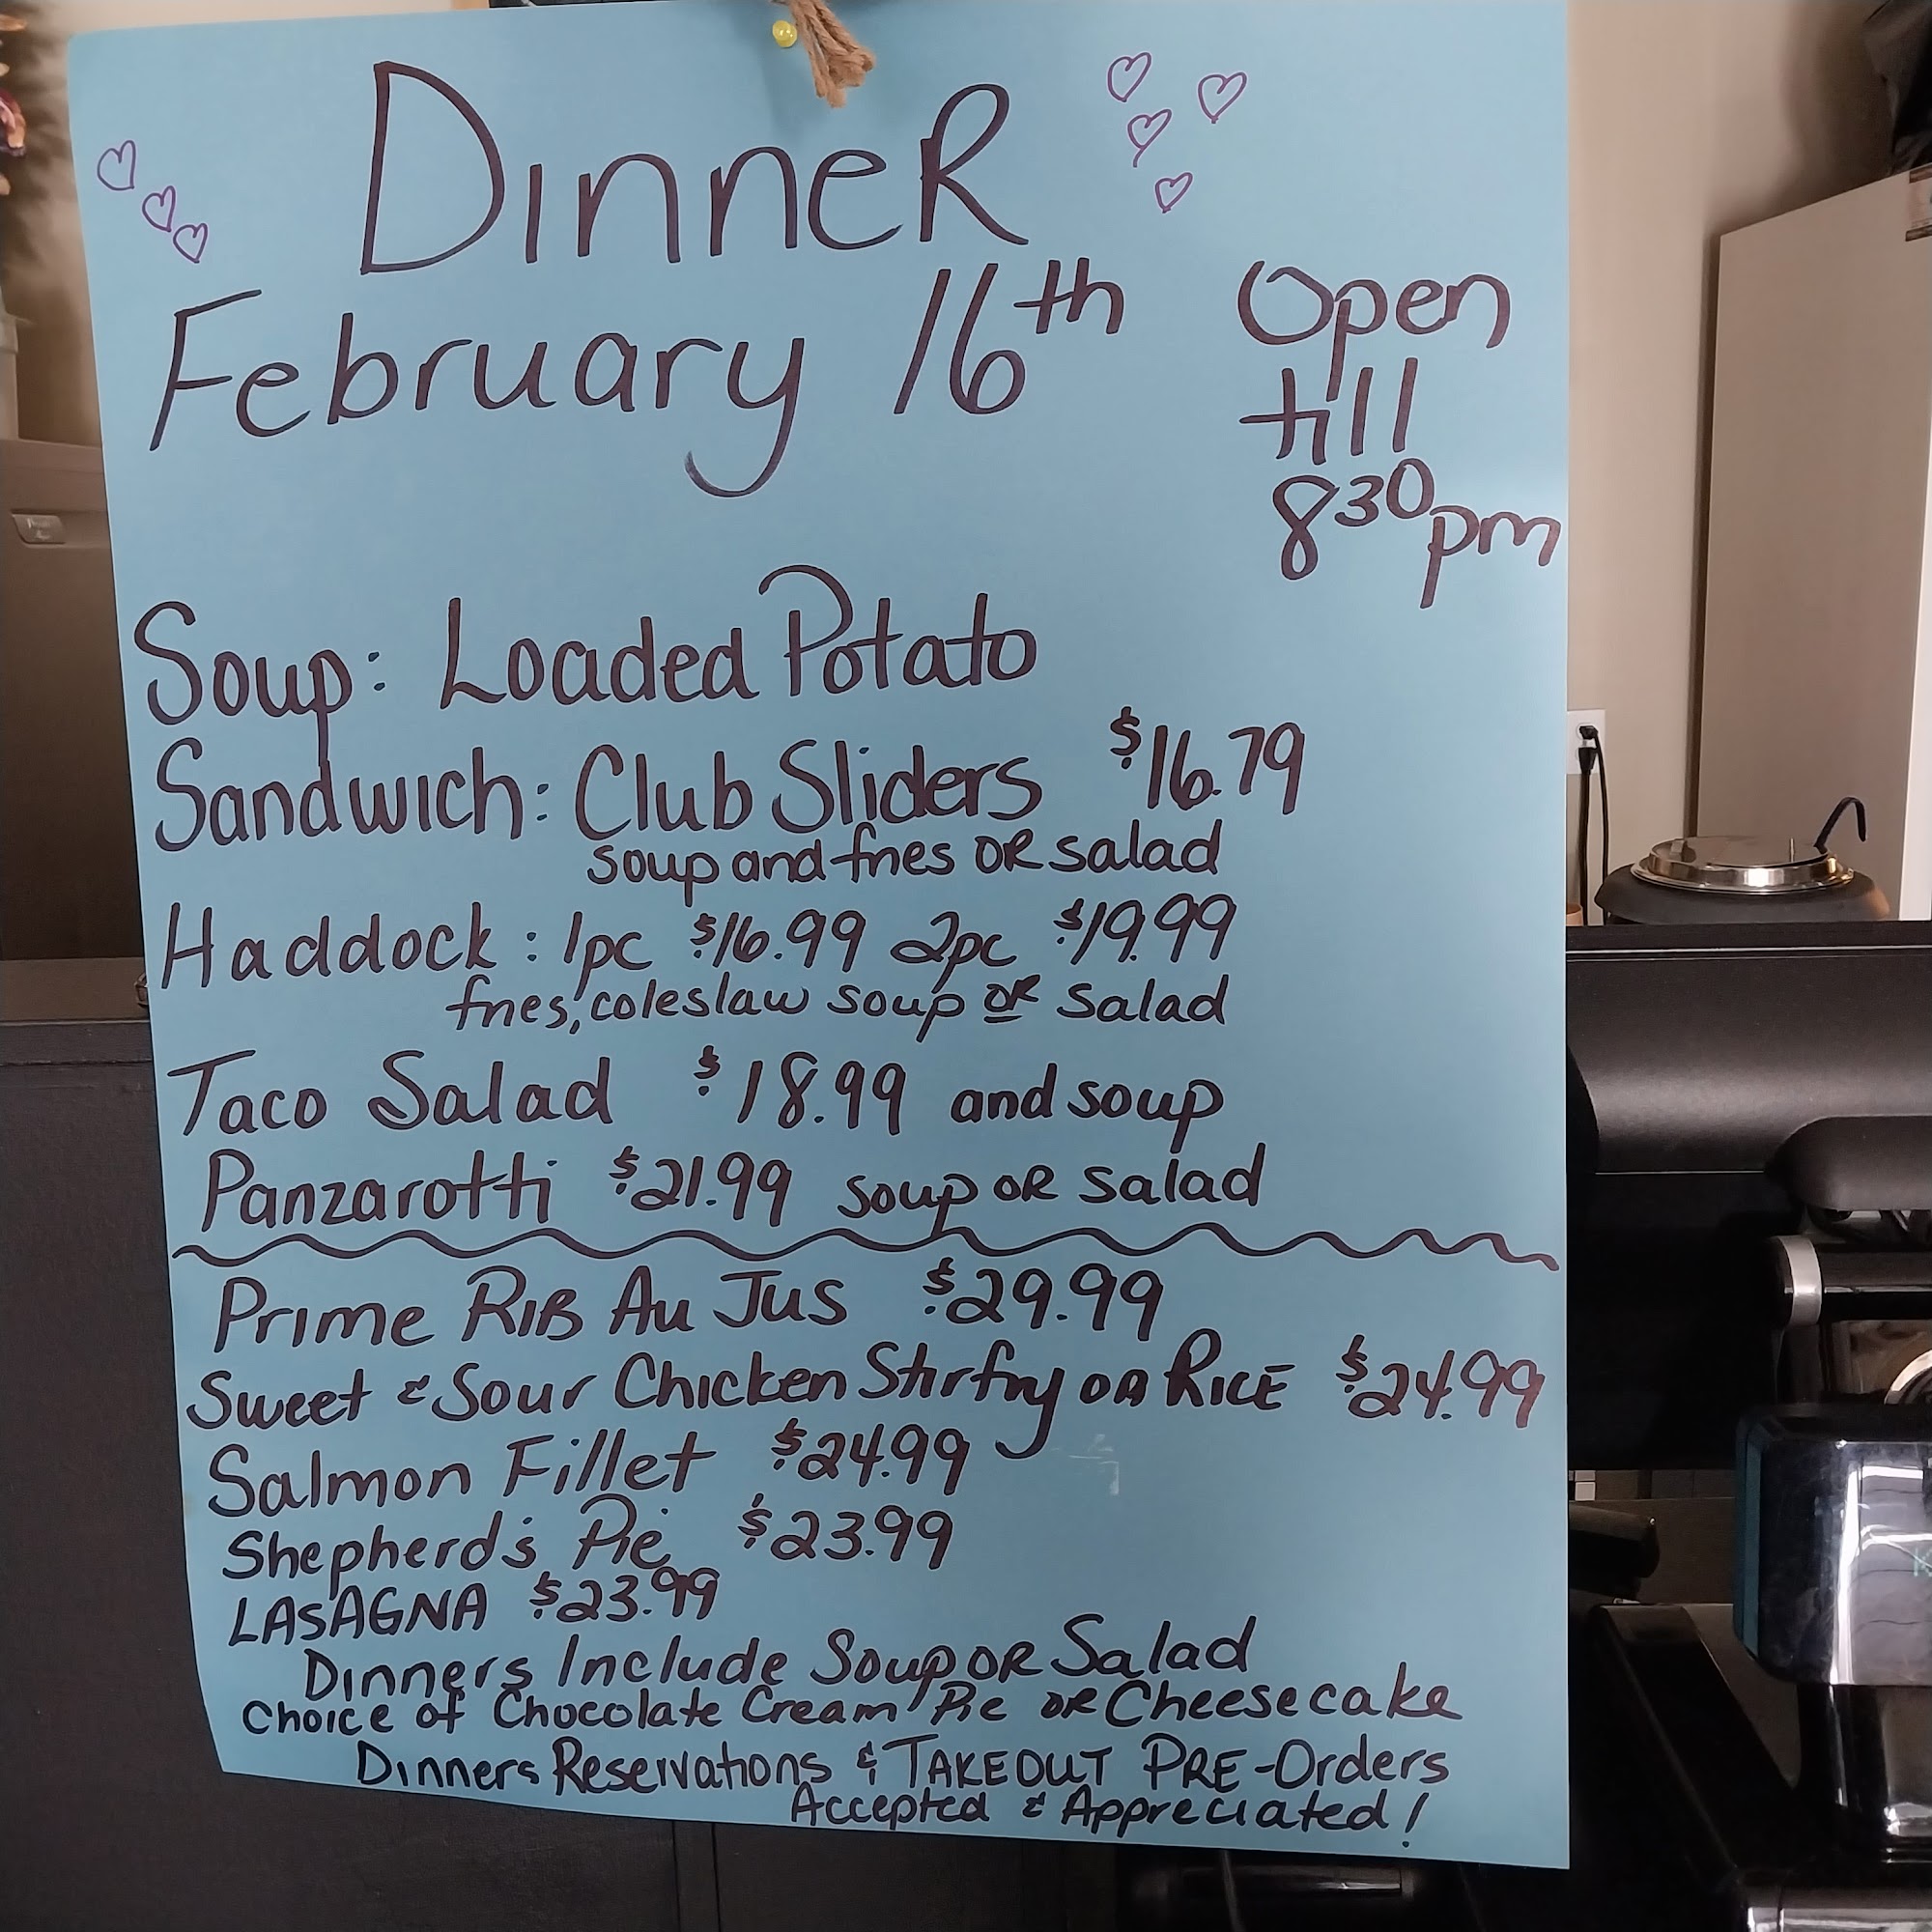 DinneR
February 16th
Open
till
8 30 pm
Soup: Loaded Potato
Sandwich: Club Sliders $16.79
soup and fries OR salad
Haddock: 1pc $16.99 2pc $19.99
fries, coleslaw soup OR salad
Taco Salad $18.99 and soup
Panzarotti $21.99 soup OR salad
Prime RIB Au Jus $29.99
Sweet & Sour Chicken Stirfry on RICE $24.99
Salmon Fillet $24.99
Shepherd's Pie $23.99
LASAGNA $23.99
Dinners Include Soup OR Salad
Choice of Chocolate Cream Pie OR Cheesecake
Dinners Reservations & TAKEOUT PRE-Orders
Accepted & Appreciated!